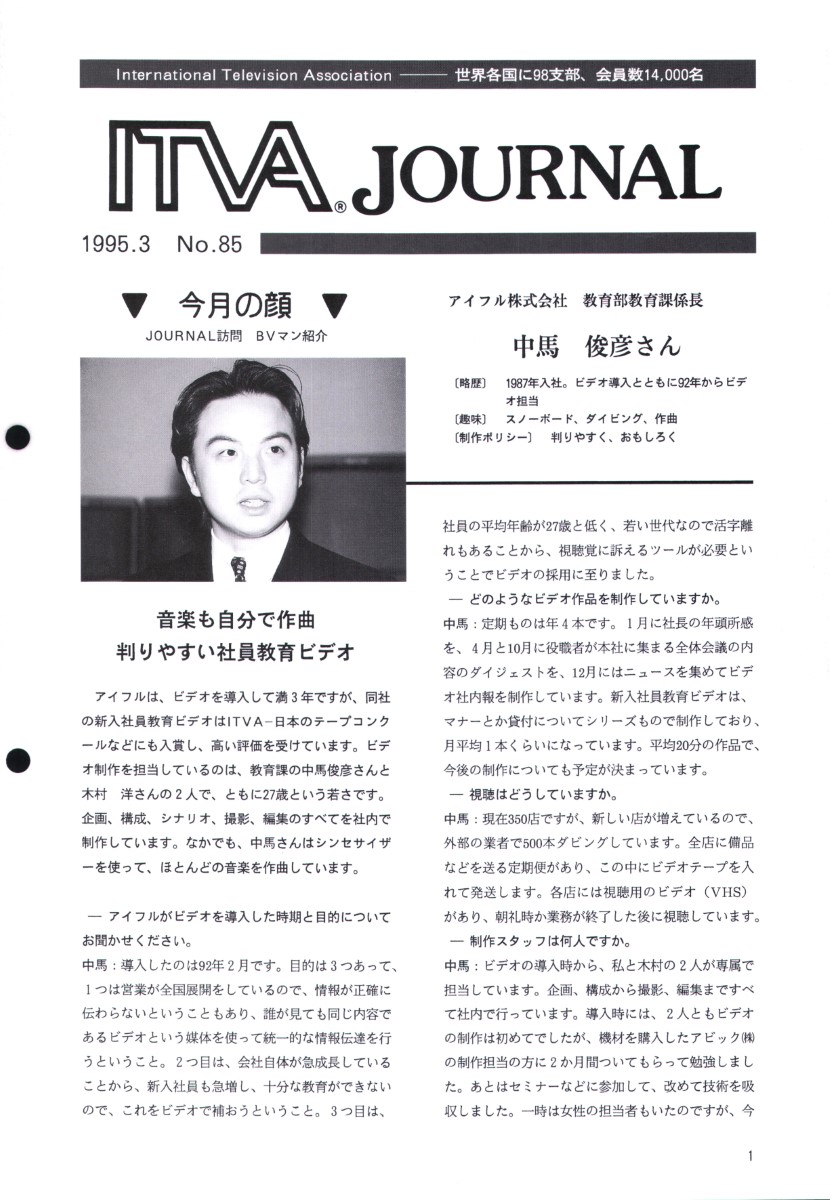 International Television Association ─── 世界各国に98支部、会員数14,000名
ITVA® JOURNAL
1995.3 No.85
▼ 今月の顔 ▼
JOURNAL訪問 BVマン紹介
アイフル株式会社 教育部教育課係長
中馬 俊彦さん
〔略歴〕 1987年入社。ビデオ導入とともに92年からビデ
オ担当
〔趣味〕 スノーボード、ダイビング、作曲
〔制作ポリシー〕 判りやすく、おもしろく
音楽も自分で作曲
判りやすい社員教育ビデオ
アイフルは、ビデオを導入して満3年ですが、同社
の新入社員教育ビデオはITVA-日本のテープコンク
ールなどにも入賞し、高い評価を受けています。ビデ
オ制作を担当しているのは、教育課の中馬俊彦さんと
木村 洋さんの2人で、ともに27歳という若さです。
企画、構成、シナリオ、撮影、編集のすべてを社内で
制作しています。なかでも、中馬さんはシンセサイザ
ーを使って、ほとんどの音楽を作曲しています。
― アイフルがビデオを導入した時期と目的について
お聞かせください。
中馬:導入したのは92年2月です。目的は3つあって、
1つは営業が全国展開をしているので、情報が正確に
伝わらないということもあり、誰が見ても同じ内容で
あるビデオという媒体を使って統一的な情報伝達を行
うということ。2つ目は、会社自体が急成長している
ことから、新入社員も急増し、十分な教育ができない
ので、これをビデオで補おうということ。3つ目は、
社員の平均年齢が27歳と低く、若い世代なので活字離
れもあることから、視聴覚に訴えるツールが必要とい
うことでビデオの採用に至りました。
― どのようなビデオ作品を制作していますか。
中馬:定期ものは年4本です。1月に社長の年頭所感
を、4月と10月に役職者が本社に集まる全体会議の内
容のダイジェストを、12月にはニュースを集めてビデ
オ社内報を制作しています。新入社員教育ビデオは、
マナーとか貸付についてシリーズもので制作しており、
月平均1本くらいになっています。平均20分の作品で、
今後の制作についても予定が決まっています。
― 視聴はどうしていますか。
中馬:現在350店ですが、新しい店が増えているので、
外部の業者で500本ダビングしています。全店に備品
などを送る定期便があり、この中にビデオテープを入
れて発送します。各店には視聴用のビデオ(VHS)
があり、朝礼時か業務が終了した後に視聴しています。
― 制作スタッフは何人ですか。
中馬:ビデオの導入時から、私と木村の2人が専属で
担当しています。企画、構成から撮影、編集まですべ
て社内で行っています。導入時には、2人ともビデオ
の制作は初めてでしたが、機材を購入したアビック㈱
の制作担当の方に2か月間ついてもらって勉強しまし
た。あとはセミナーなどに参加して、改めて技術を吸
収しました。一時は女性の担当者もいたのですが、今
1